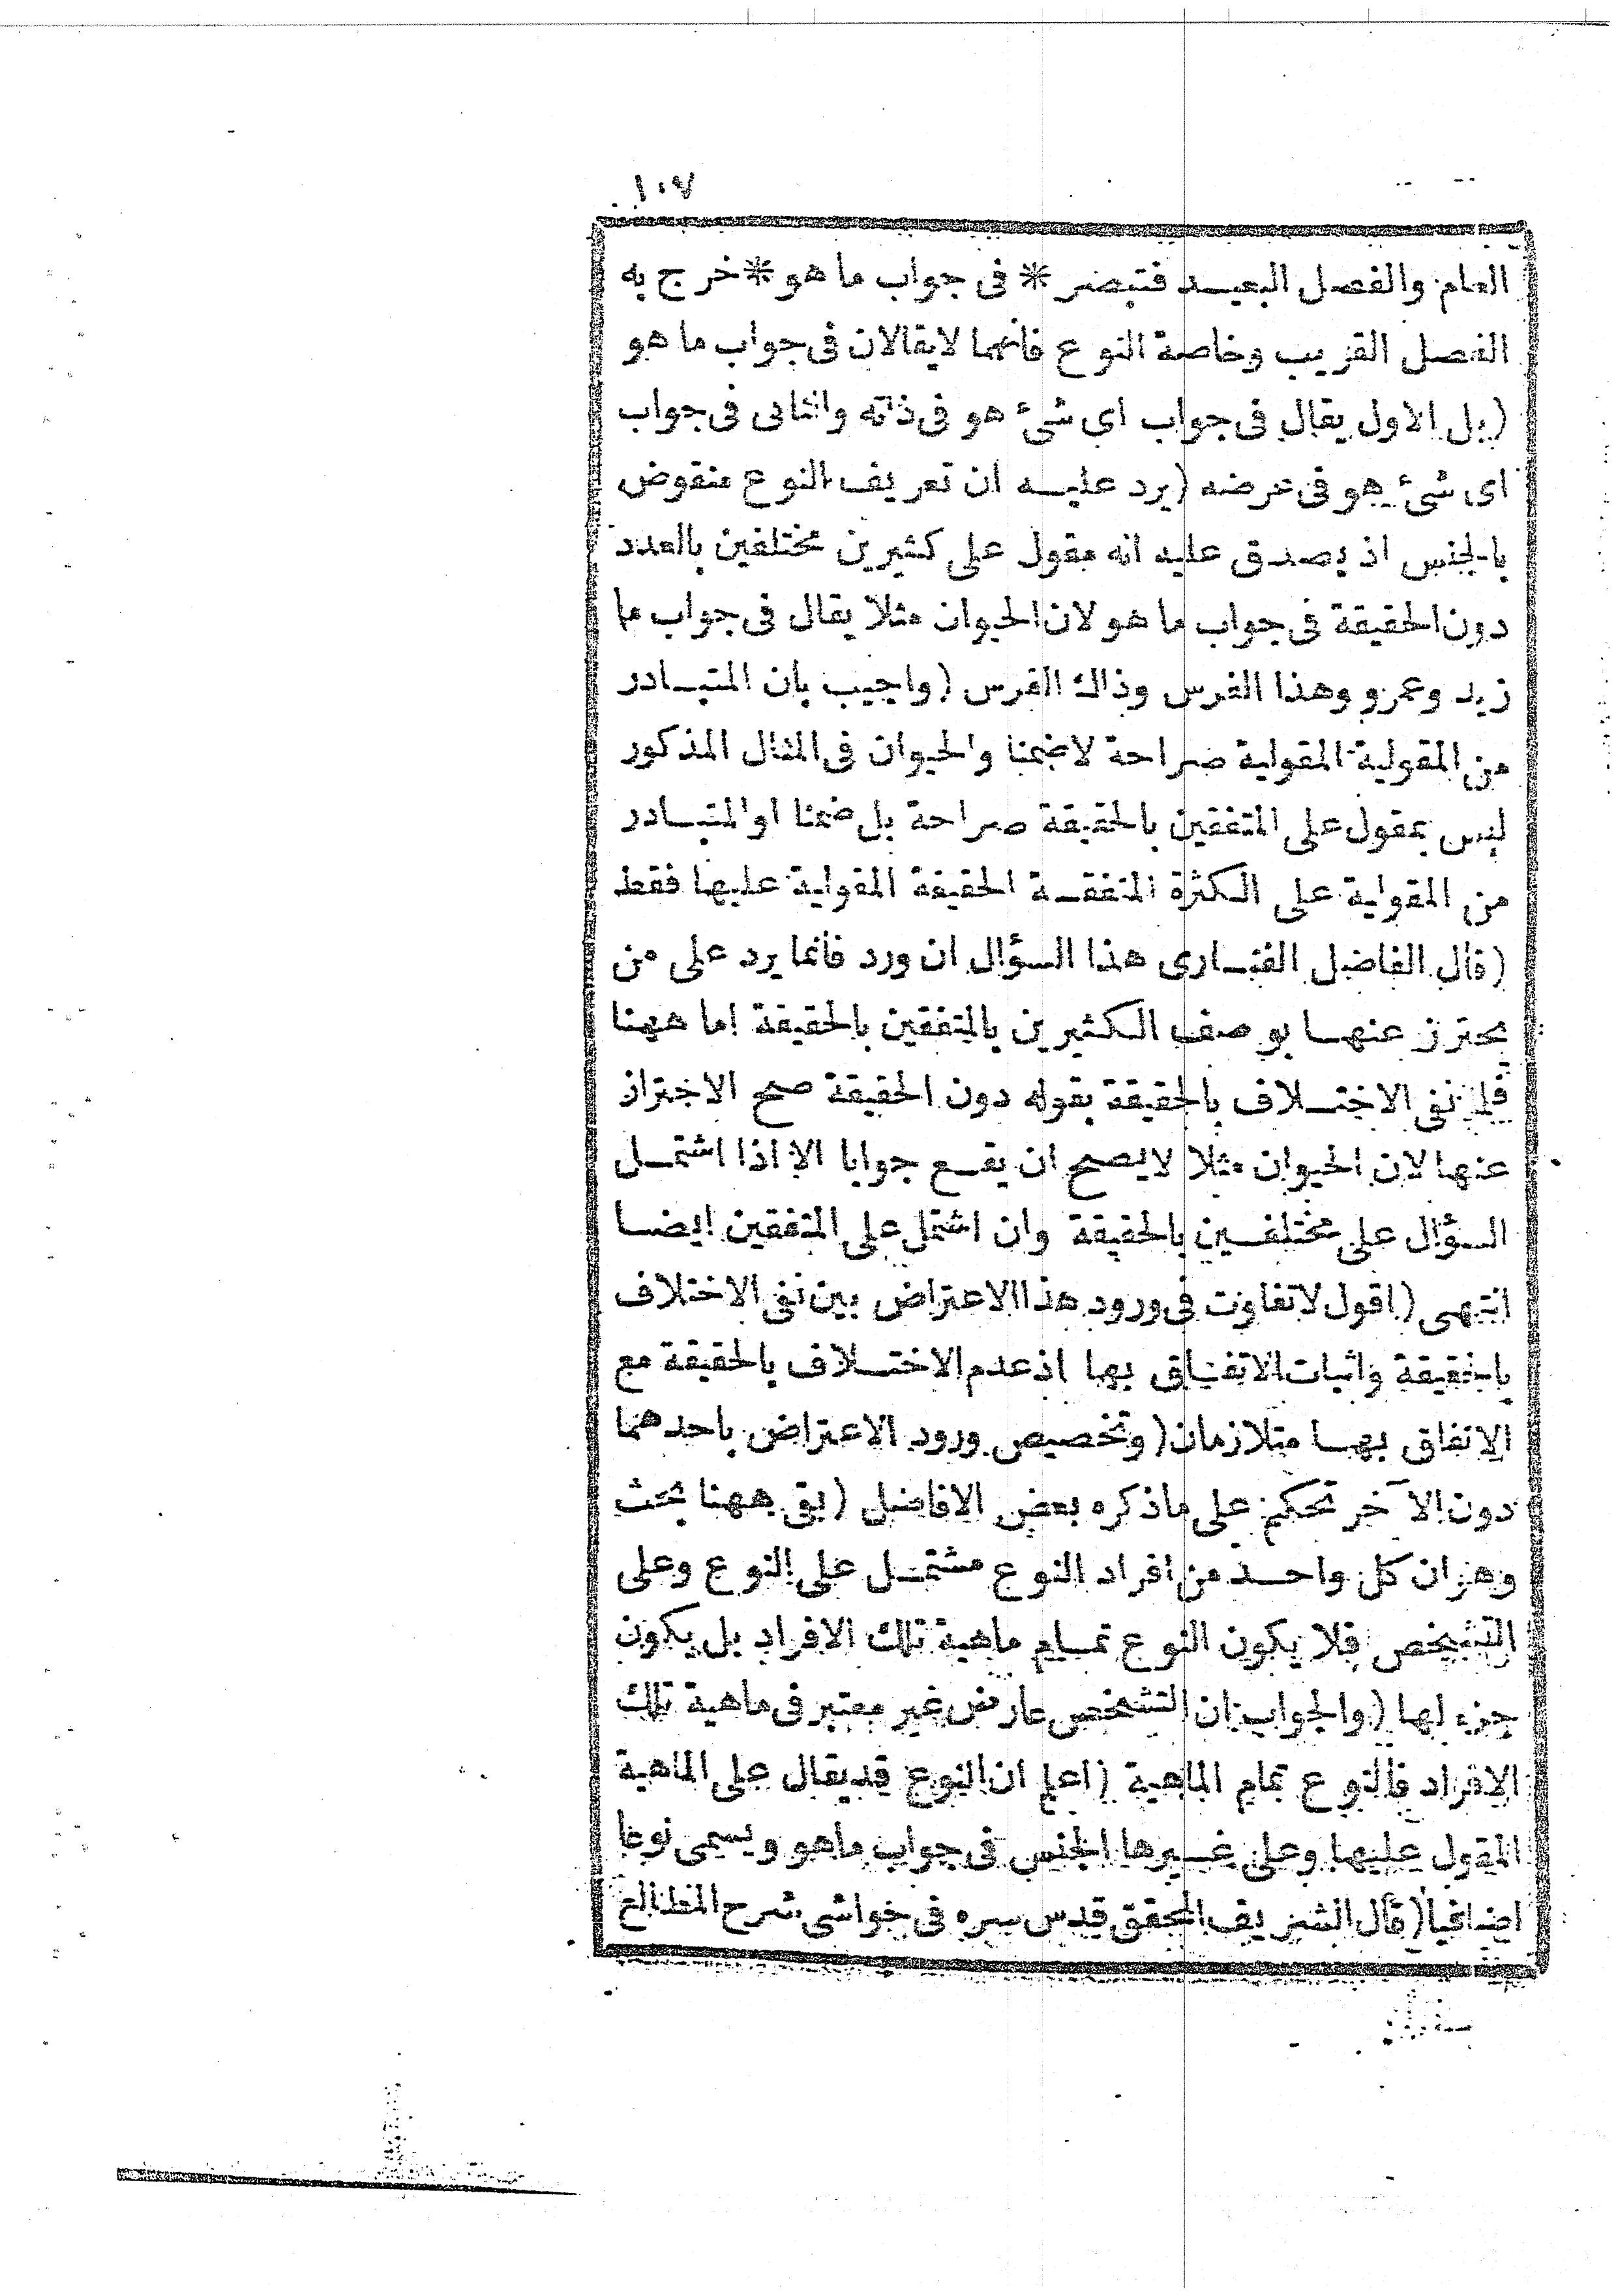 ١٠٧
العام والفصل البعيد فتبصر * فى جواب ما هو * خرج به
الفصل القريب وخاصة النوع فانهما لا يقالان فى جواب ما هو
(بل الاول يقال فى جواب اى شئ هو فى ذاته والثانى فى جواب
اى شئ هو فى عرضه (يرد عليه ان تعريف النوع منقوض
بالجنس اذ يصدق عليه انه مقول على كثيرين مختلفين بالعدد
دون الحقيقة فى جواب ما هو لان الحيوان مثلا يقال فى جواب ما
زيد وعمرو وهذا الفرس وذاك الفرس (واجيب بان المتبادر
من المقولية المقولية صراحة لا ضمنا والحيوان فى المثال المذكور
ليس بمقول على المتفقين بالحقيقة صراحة بل ضمنا او المتبادر
من المقولية على الكثرة المتفقة الحقيقة المقولية عليها فقط
(قال الفاضل الفنارى هذا السؤال ان ورد فانما يرد على من
يحترز عنها بوصف الكثيرين بالمتفقين بالحقيقة اما ههنا
فلما نفى الاختلاف بالحقيقة بقوله دون الحقيقة صح الاحتراز
عنها لان الحيوان مثلا لا يصح ان يقع جوابا الا اذا اشتمل
السؤال على مختلفين بالحقيقة وان اشتمل على المتفقين ايضا
انتهى (اقول لا تفاوت فى ورود هذا الاعتراض بين نفى الاختلاف
بالحقيقة واثبات الاتفاق بها اذ عدم الاختلاف بالحقيقة مع
الاتفاق بها متلازمان (وتخصيص ورود الاعتراض باحدهما
دون الآخر تحكم على ما ذكره بعض الافاضل (بقى ههنا بحث
وهو ان كل واحد من افراد النوع مشتمل على النوع وعلى
التشخص فلا يكون النوع تمام ماهية تلك الافراد بل يكون
جزء لها (والجواب ان التشخص عارض غير معتبر فى ماهية تلك
الافراد فالنوع تمام الماهية (اعلم ان النوع قد يقال على الماهية
المقول عليها وعلى غيرها الجنس فى جواب ما هو ويسمى نوعا
اضافيا (قال الشريف المحقق قدس سره فى حواشى شرح المطالع